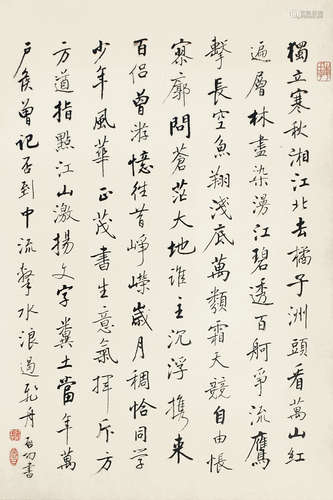 獨立寒秋湘江北去橘子洲頭看萬山紅
遍層林盡染漫江碧透百舸爭流鷹
擊長空魚翔淺底萬類霜天競自由悵
寥廓問蒼茫大地誰主沉浮携來
百侣曾游憶往昔崢嶸歲月稠恰同學
少年風華正茂書生意氣揮斥方
方遒指點江山激揚文字糞土當年萬
户侯曾記否到中流擊水浪遏飛舟 启功書